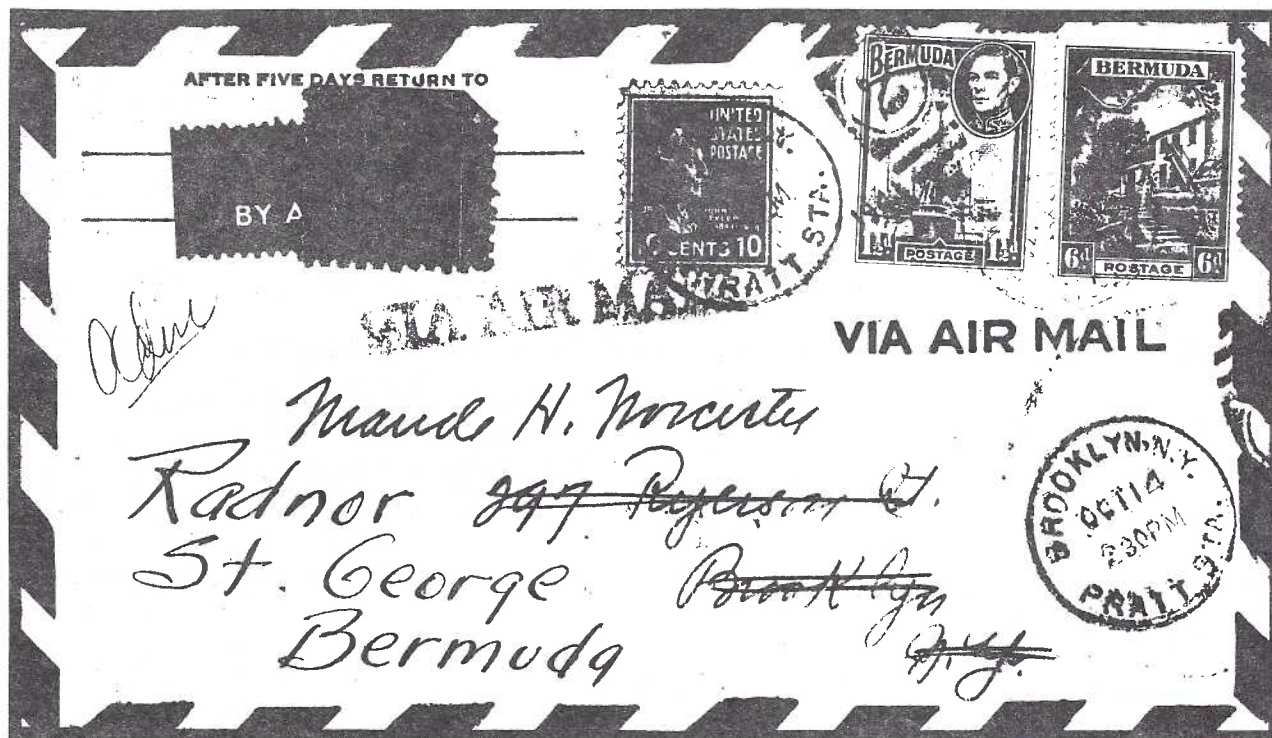 AFTER FIVE DAYS RETURN TO
BY A
UNITED
STATES
POSTAGE
JOHN
TYLER
10 CENTS 10
PRATT STA.
BERMUDA
1½d POSTAGE 1½d
BERMUDA
6d POSTAGE 6d
VIA AIR MAIL
VIA AIR MAIL
Maude H. Worcester
Radnor 297 Ryerson St.
St. George Brooklyn
Bermuda N.Y.
BROOKLYN, N.Y.
OCT 14
230PM
PRATT STA.